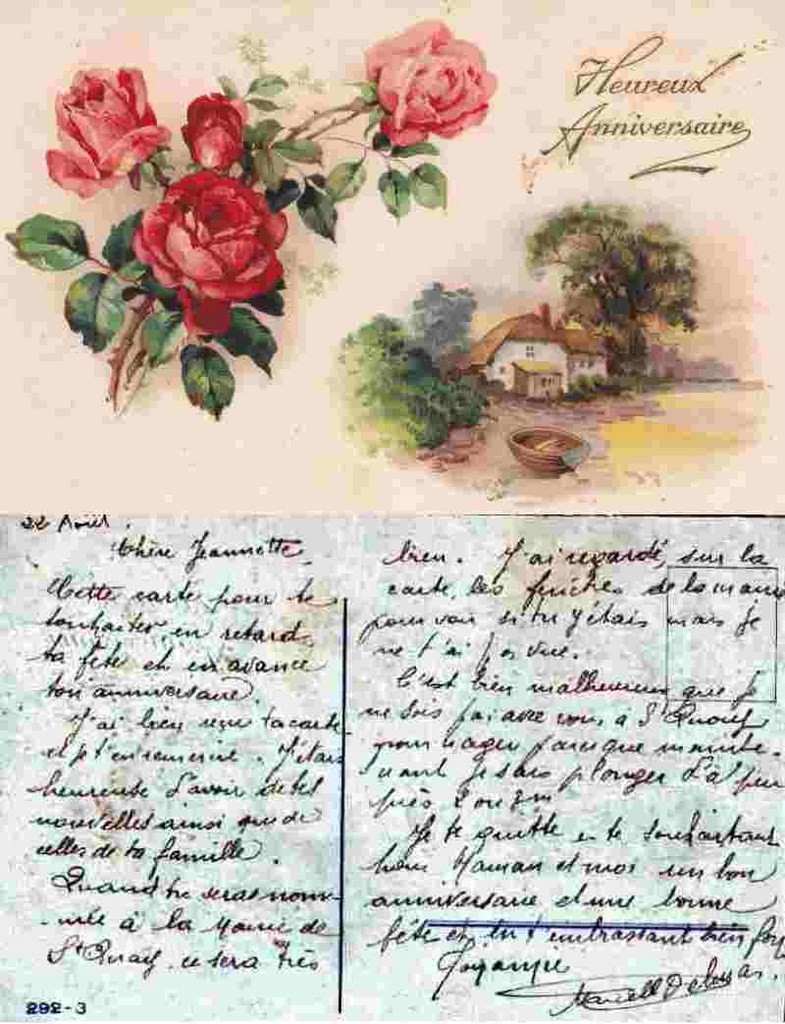 Heureux
Anniversaire
22 Août.
Chère Jeannette
Cette carte pour te
souhaiter en retard
ta fête et en avance
ton anniversaire.
J'ai bien reçu ta carte
et je t'en remercie. J'étais
heureuse d'avoir de tes
nouvelles ainsi que de
celles de ta famille.
Quand tu seras nom-
-mée à la Mairie de
St Quay, ce sera très
bien. J'ai regardé sur la
carte, les fenêtres de la mairie
pour voir si tu y étais mais je
ne t'ai pas vue.
C'est bien malheureux que je
ne sois pas avec vous à St Quay
pour nager parce que mainte-
nant je sais plonger d'à peu
près 2 ou 3m
Je te quitte en te souhaitant
Maman et moi un bon
anniversaire et une bonne
fête et en t'embrassant bien
292-3